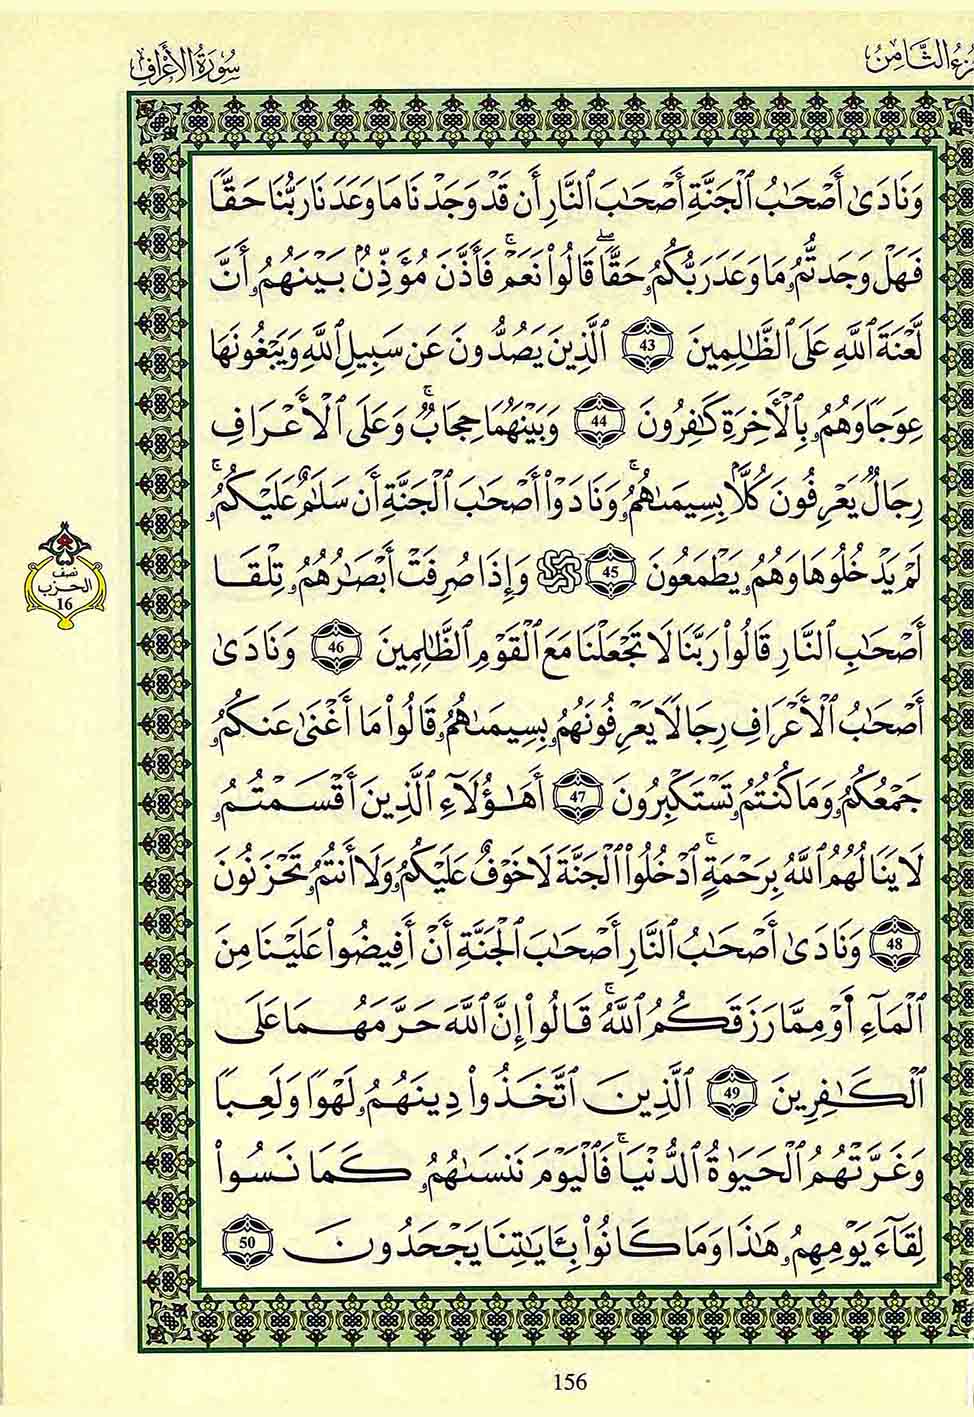 سُورَةُ الأَعْرَافِ
الثَّامِنُ
وَنَادَىٰ أَصْحَٰبُ اُ۬لْجَنَّةِ أَصْحَٰبَ اَ۬لنَّارِ أَن قَدْ وَجَدْنَا مَا وَعَدَنَا رَبُّنَا حَقّٗا
فَهَلْ وَجَدتُّمُۥ مَا وَعَدَ رَبُّكُمُۥ حَقّٗاۖ قَالُواْ نَعَمْۚ فَأَذَّنَ مُؤَذِّنُۢ بَيْنَهُمُۥ أَنَّ
لَّعْنَةَ اَ۬للَّهِ عَلَى اَ۬لظَّٰلِمِينَ 43 اَ۬لَّذِينَ يَصُدُّونَ عَن سَبِيلِ اِ۬للَّهِ وَيَبْغُونَهَا
عِوَجٗا وَهُمُۥ بِالْأٓخِرَةِ كَٰفِرُونَ 44 وَبَيْنَهُمَا حِجَابٞۚ وَعَلَى اَ۬لْأَعْرَافِ
رِجَالٞ يَعْرِفُونَ كُلَّاۢ بِسِيمَىٰهُمُۥۚ وَنَادَوْاْ أَصْحَٰبَ اَ۬لْجَنَّةِ أَن سَلَٰمٌ عَلَيْكُمُۥۚ
لَمْ يَدْخُلُوهَا وَهُمُۥ يَطْمَعُونَ 45 وَإِذَا صُرِفَتْ أَبْصَٰرُهُمُۥ تِلْقَا
أَصْحَٰبِ اِ۬لنَّارِ قَالُواْ رَبَّنَا لَا تَجْعَلْنَا مَعَ اَ۬لْقَوْمِ اِ۬لظَّٰلِمِينَ 46 وَنَادَىٰ
أَصْحَٰبُ اُ۬لْأَعْرَافِ رِجَالٗا يَعْرِفُونَهُمُۥ بِسِيمَىٰهُمُۥ قَالُواْ مَا أَغْنَىٰ عَنكُمُۥ
جَمْعُكُمُۥ وَمَا كُنتُمُۥ تَسْتَكْبِرُونَ 47 أَهَٰؤُلَآءِ اِ۬لَّذِينَ أَقْسَمْتُمُۥ
لَا يَنَالُهُمُ اُ۬للَّهُ بِرَحْمَةٍۚ اِ۟دْخُلُواْ اُ۬لْجَنَّةَ لَا خَوْفٌ عَلَيْكُمُۥ وَلَا أَنتُمُۥ تَحْزَنُونَ
48 وَنَادَىٰ أَصْحَٰبُ اُ۬لنَّارِ أَصْحَٰبَ اَ۬لْجَنَّةِ أَنْ أَفِيضُواْ عَلَيْنَا مِنَ
اَ۬لْمَآءِ أَوْ مِمَّا رَزَقَكُمُ اُ۬للَّهُۚ قَالُواْ إِنَّ اَ۬للَّهَ حَرَّمَهُمَا عَلَى
اَ۬لْكَٰفِرِينَ 49 اَ۬لَّذِينَ اَ۪تَّخَذُواْ دِينَهُمُۥ لَهْوٗا وَلَعِبٗا
وَغَرَّتْهُمُ اُ۬لْحَيَوٰةُ اُ۬لدُّنْيَاۚ فَالْيَوْمَ نَنسَىٰهُمُۥ كَمَا نَسُواْ
لِقَآءَ يَوْمِهِمُۥ هَٰذَا وَمَا كَانُواْ بِـَٔايَٰتِنَا يَجْحَدُونَ 50
نصف
الحزب
16
156